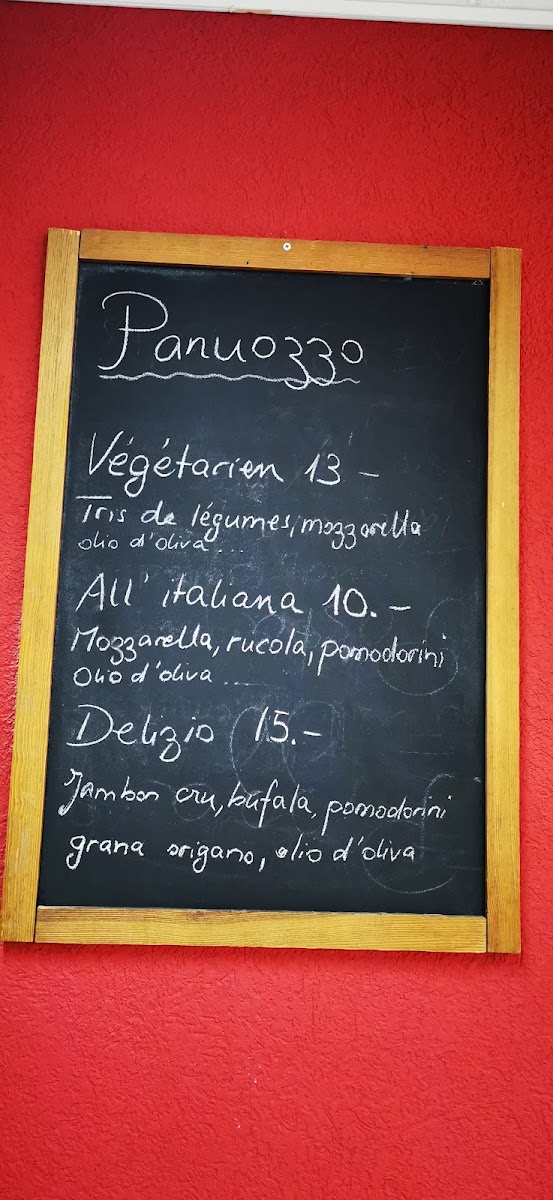 Panuozzo
Végétarien 13 -
Tris de légumes, mozzarella
olio d'oliva ....
All' italiana 10.-
Mozzarella, rucola, pomodorini
Olio d'oliva ....
Delizio 15.-
Jambon cru, bufala, pomodorini
grana origano, olio d'oliva